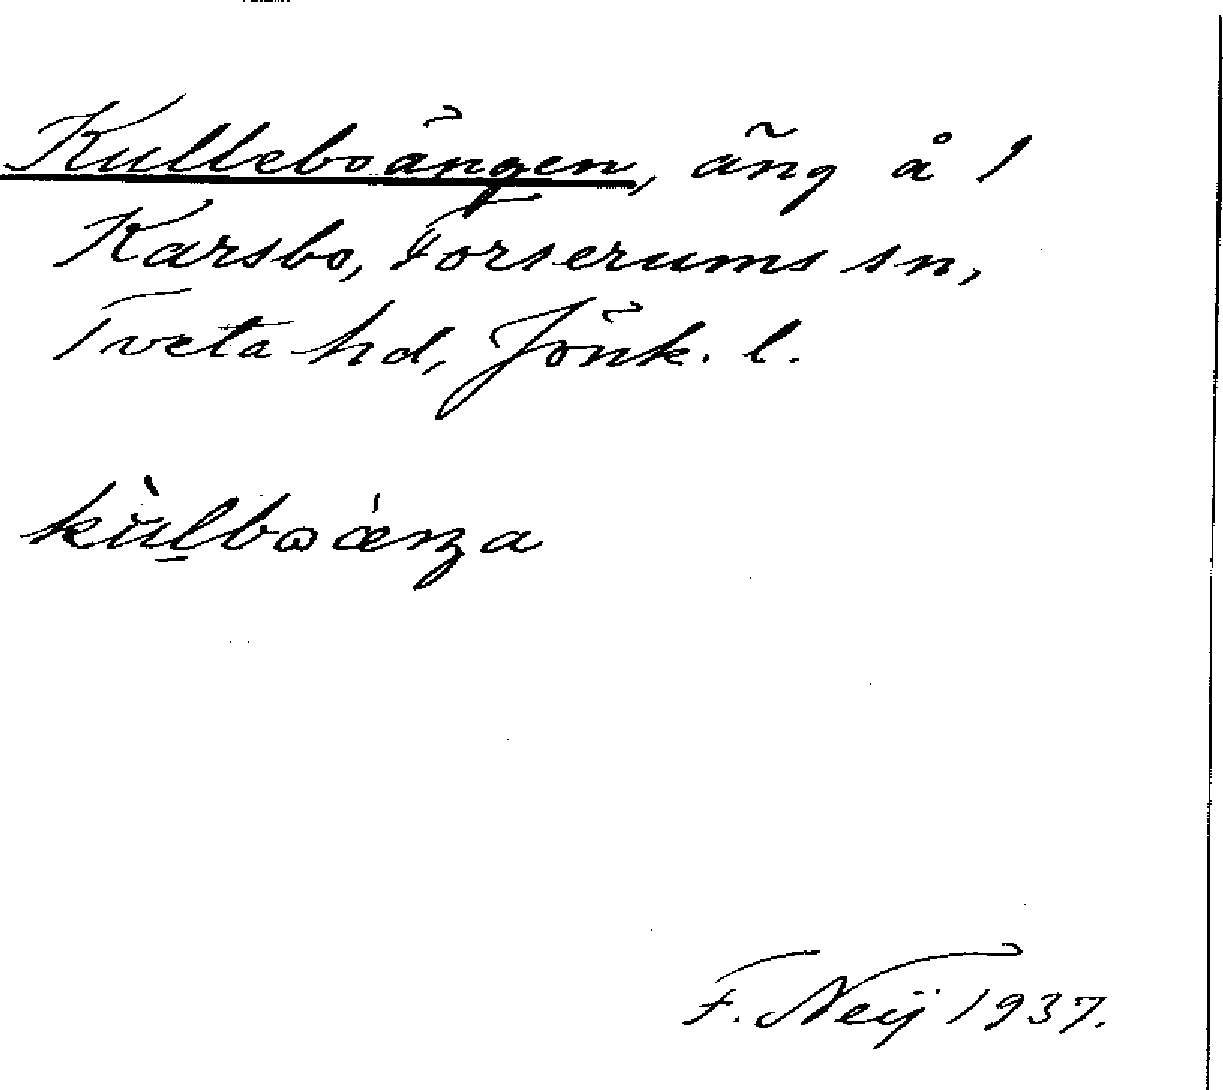 Kulleboängen, äng å 1
Karsbo, Forserums sn,
Tveta hd, Jönk. l.
kùlboǽŋa
F. Neij 1937.